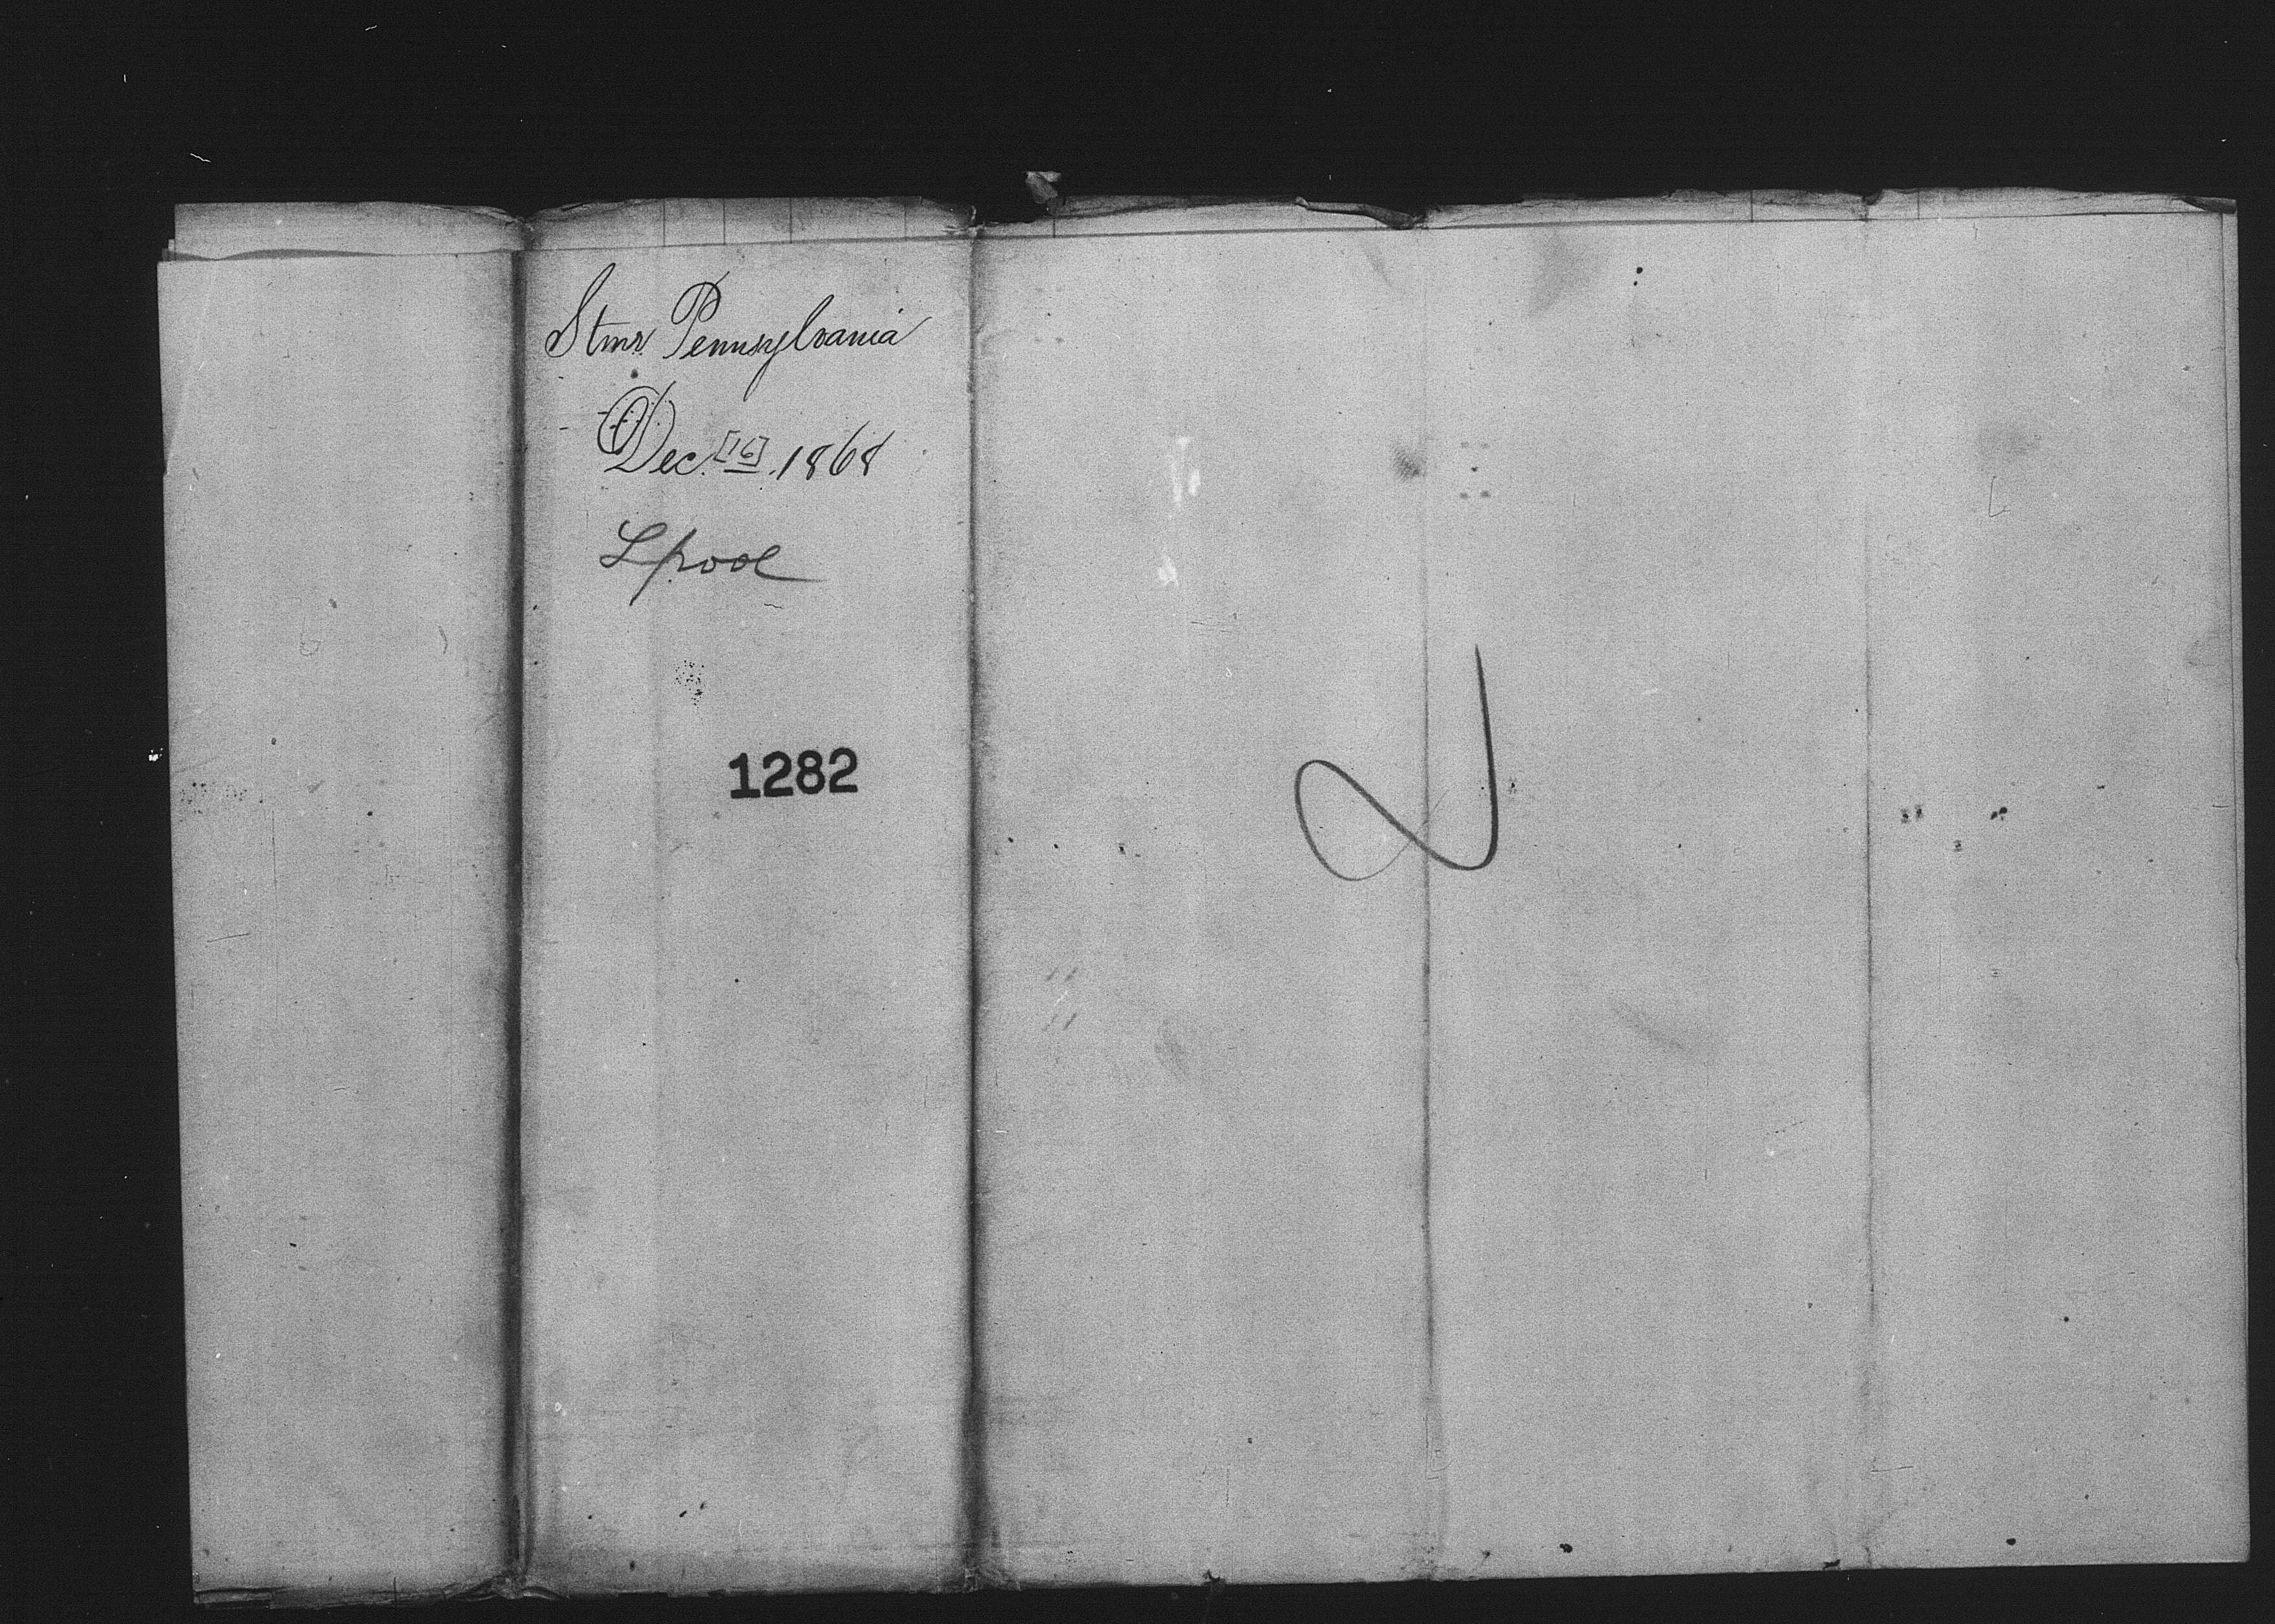 Stmr Pennsylvania
Dec. [16] 1868
Lpool
1282